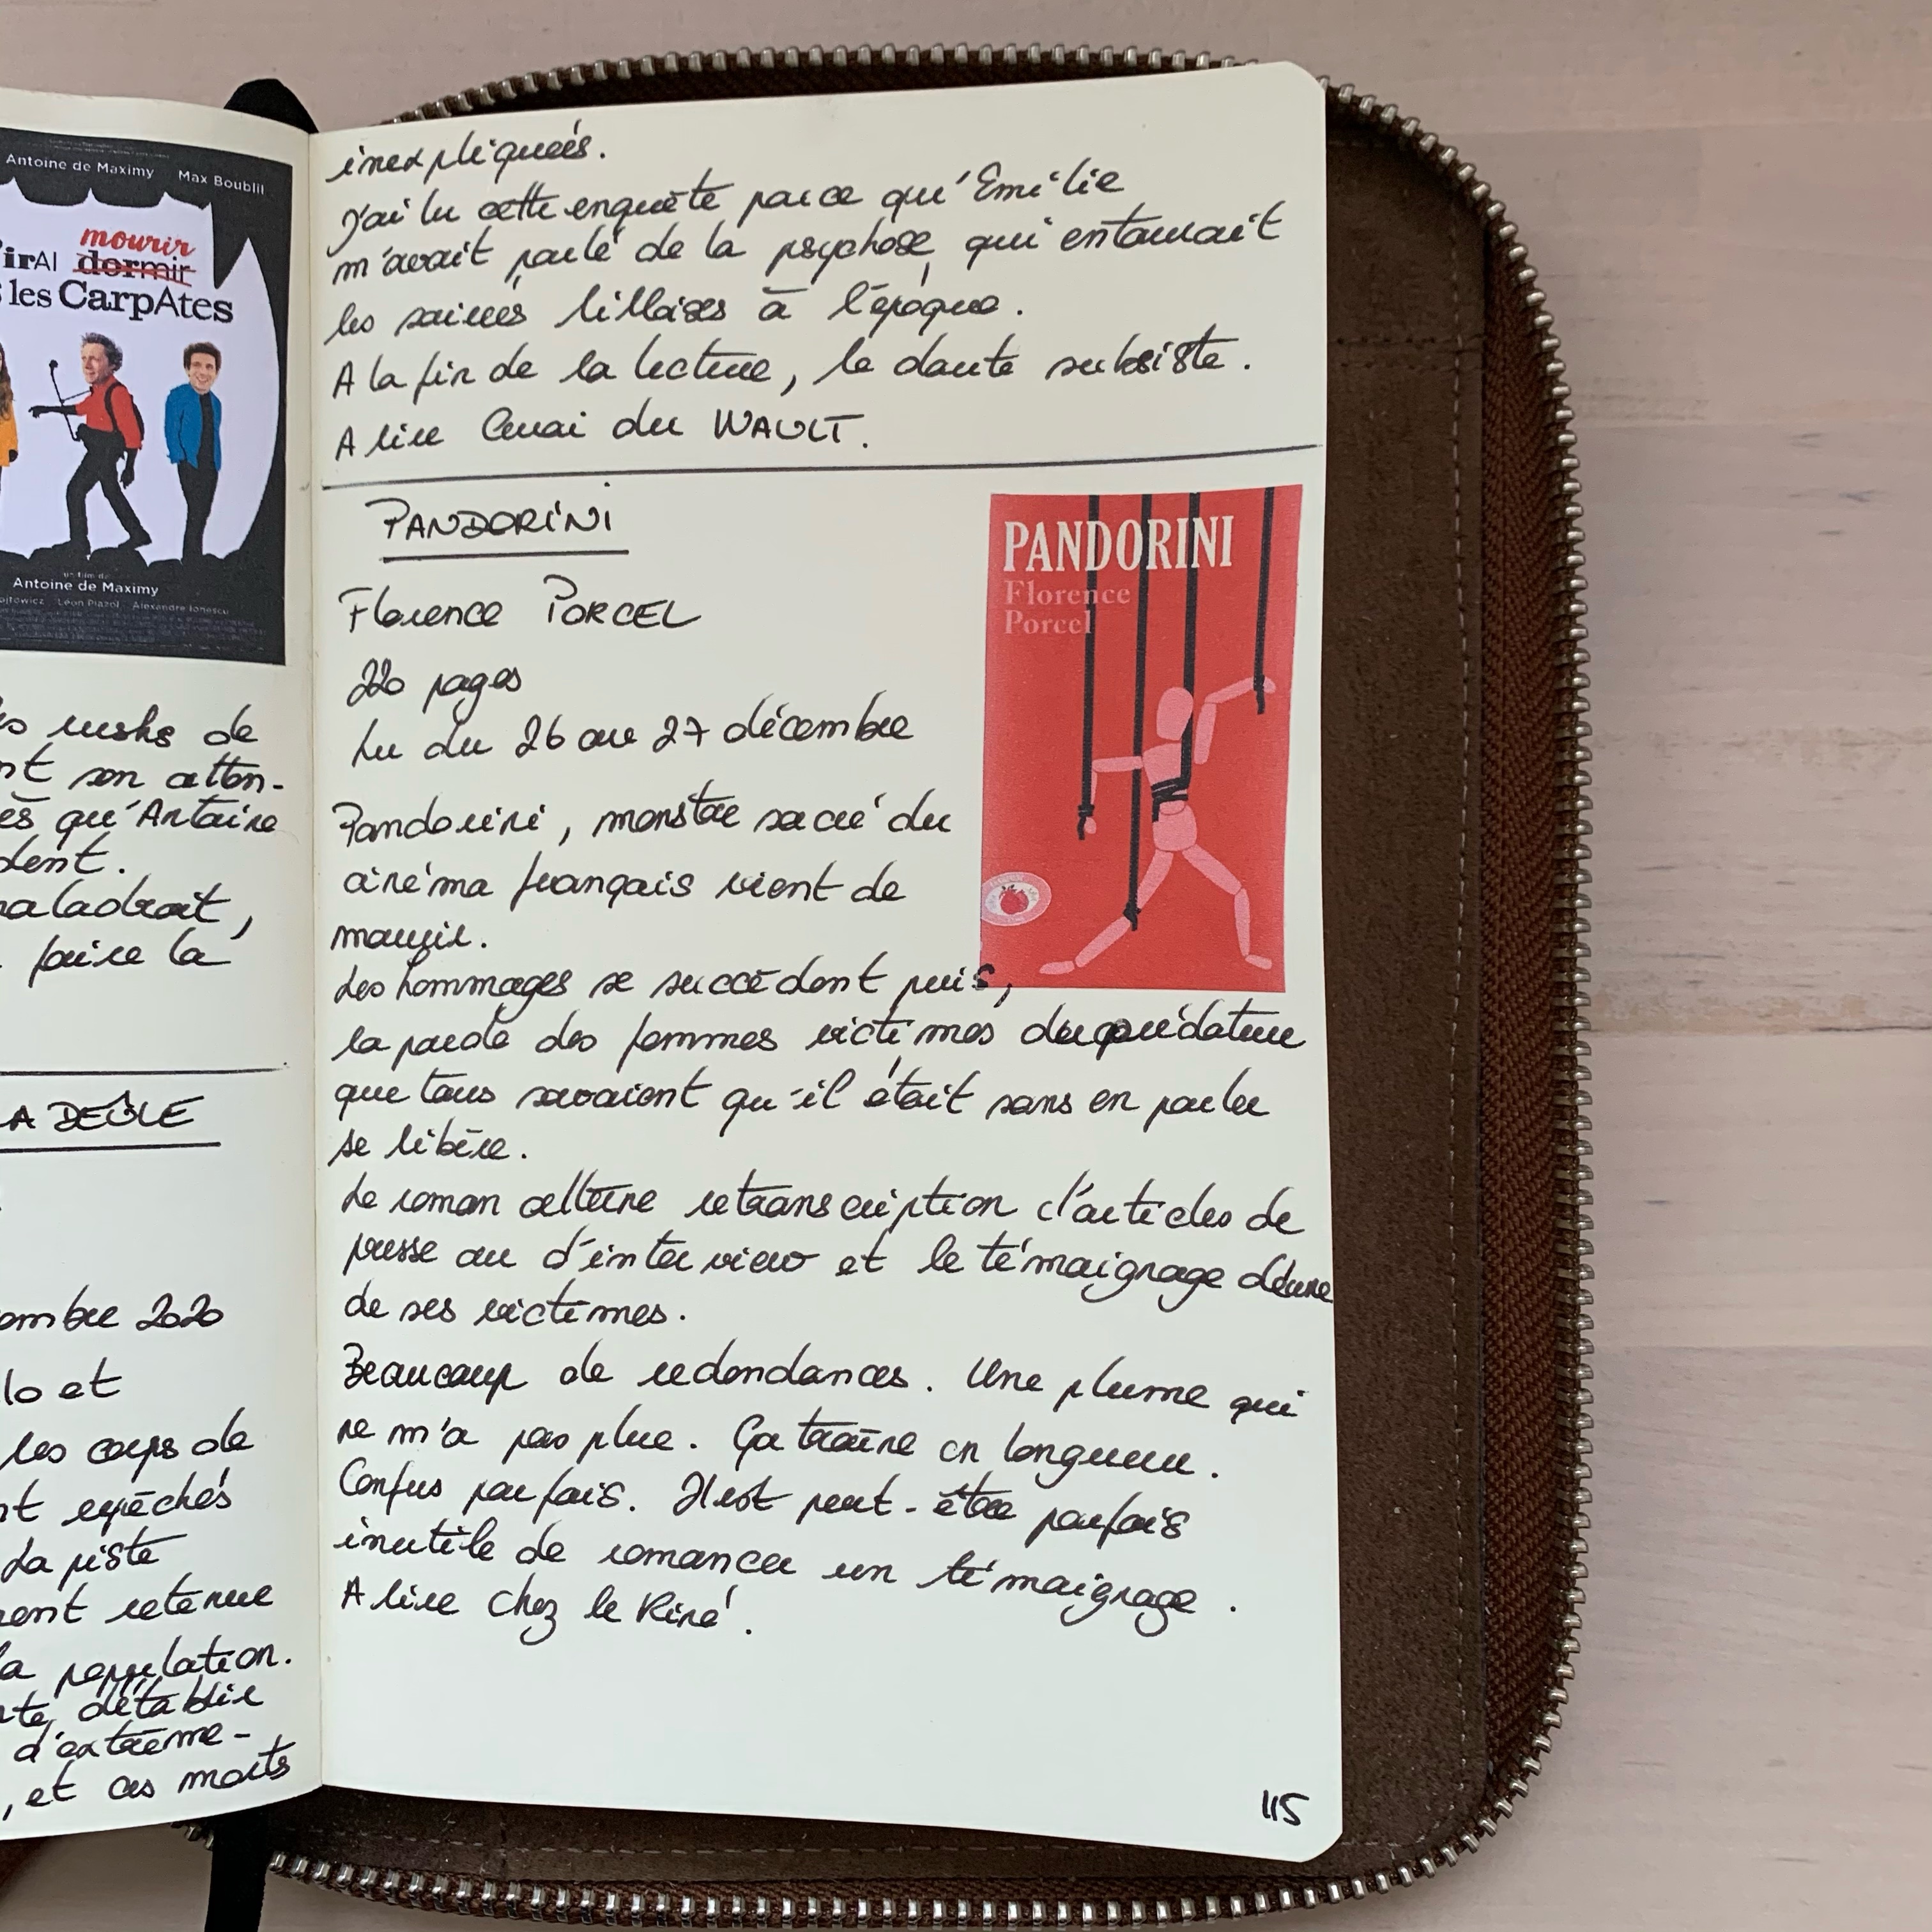 Antoine de Maximy Max Boublil
mourir
'irAI dormir
s les CarpAtes
un film de
Antoine de Maximy
ojtowicz Léon Plazol Alexandre Ionescu
es rushs de
nt son atten-
ès qu'Antoine
dent.
maladroit,
faire la
LA DEÛLE
embre 2020
lo et
les corps de
nt repêchés
La piste
ment retenue
la population.
nte, d'établir
d'extrême-
, et ces morts
inexpliquées.
J'ai lu cette enquête parce qu'Emilie
m'avait parlé de la psychose qui entourait
les soirées lilloises à l'époque.
A la fin de la lecture, le doute subsiste.
A lire Quai du WAULT.
PANDORINI
Florence PORCEL
220 pages
Lu du 26 au 27 décembre
Pandorini, monstre sacré du
cinéma français vient de
mourir.
Les hommages se succèdent puis,
la parole des femmes victimes du prédateur
que tous savaient qu'il était sans en parler
se libère.
Le roman alterne retranscription d'articles de
presse ou d'interview et le témoignage d'une
de ses victimes.
Beaucoup de redondances. Une plume qui
ne m'a pas plue. Ça traîne en longueur.
Confus parfois. Il est peut-être parfois
inutile de romancer un témoignage.
A lire chez le Kiné.
PANDORINI
Florence
Porcel
115